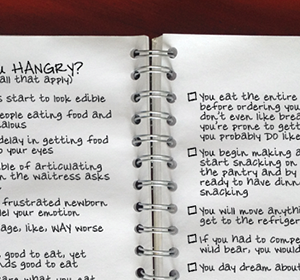 u HANGRY?
all that apply)
s start to look edible
eople eating food and
ealous
delay in getting food
o your eyes
ble of articulating
n the waitress asks
frustrated newborn
el your emotion
age, like, WAY worse
good to eat, yet
nds good to eat
You eat the entire
before ordering you
don't even like brea
you're prone to gett
you probably DO like
You begin making a
start snacking on
the pantry and by
ready to have dinn
snacking
You will move anythi
get to the refriger
If you had to compe
wild bear, you would
You day dream about